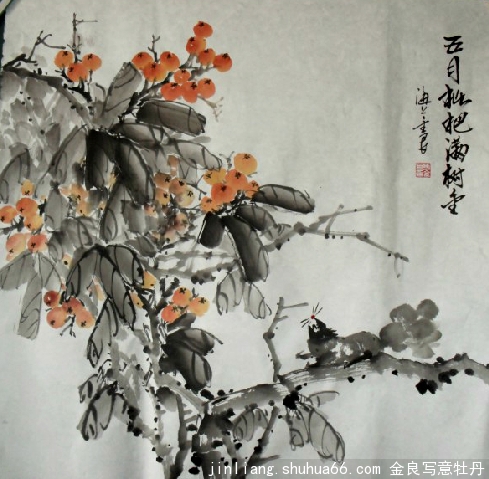 五月枇杷满树金
jinliang.shuhua66.com 金良写意牡丹